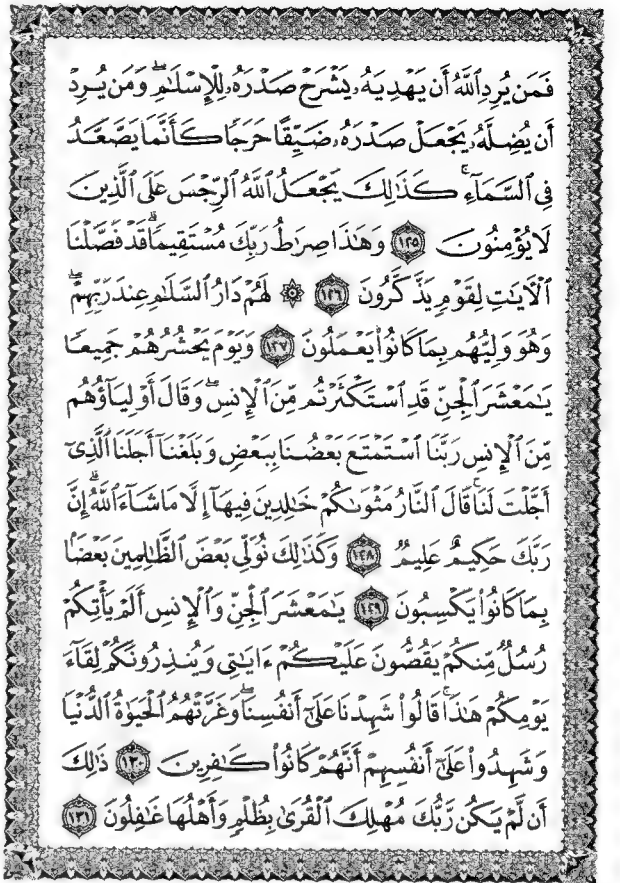 فَمَن يُرِدِ ٱللَّهُ أَن يَهْدِيَهُۥ يَشْرَحْ صَدْرَهُۥ لِلْإِسْلَٰمِۖ وَمَن يُرِدْ
أَن يُضِلَّهُۥ يَجْعَلْ صَدْرَهُۥ ضَيِّقًا حَرَجًا كَأَنَّمَا يَصَّعَّدُ
فِى ٱلسَّمَآءِۚ كَذَٰلِكَ يَجْعَلُ ٱللَّهُ ٱلرِّجْسَ عَلَى ٱلَّذِينَ
لَا يُؤْمِنُونَ ١٢٥ وَهَٰذَا صِرَٰطُ رَبِّكَ مُسْتَقِيمًاۗ قَدْ فَصَّلْنَا
ٱلْءَايَٰتِ لِقَوْمٍ يَذَّكَّرُونَ ١٢٦ ۞ لَهُمْ دَارُ ٱلسَّلَٰمِ عِندَ رَبِّهِمْۖ
وَهُوَ وَلِيُّهُم بِمَا كَانُوا۟ يَعْمَلُونَ ١٢٧ وَيَوْمَ يَحْشُرُهُمْ جَمِيعًا
يَٰمَعْشَرَ ٱلْجِنِّ قَدِ ٱسْتَكْثَرْتُم مِّنَ ٱلْإِنسِۖ وَقَالَ أَوْلِيَآؤُهُم
مِّنَ ٱلْإِنسِ رَبَّنَا ٱسْتَمْتَعَ بَعْضُنَا بِبَعْضٍ وَبَلَغْنَآ أَجَلَنَا ٱلَّذِىٓ
أَجَّلْتَ لَنَاۚ قَالَ ٱلنَّارُ مَثْوَىٰكُمْ خَٰلِدِينَ فِيهَآ إِلَّا مَا شَآءَ ٱللَّهُۗ إِنَّ
رَبَّكَ حَكِيمٌ عَلِيمٌ ١٢٨ وَكَذَٰلِكَ نُوَلِّى بَعْضَ ٱلظَّٰلِمِينَ بَعْضًۢا
بِمَا كَانُوا۟ يَكْسِبُونَ ١٢٩ يَٰمَعْشَرَ ٱلْجِنِّ وَٱلْإِنسِ أَلَمْ يَأْتِكُمْ
رُسُلٌ مِّنكُمْ يَقُصُّونَ عَلَيْكُمْ ءَايَٰتِى وَيُنذِرُونَكُمْ لِقَآءَ
يَوْمِكُمْ هَٰذَاۚ قَالُوا۟ شَهِدْنَا عَلَىٰٓ أَنفُسِنَاۖ وَغَرَّتْهُمُ ٱلْحَيَوٰةُ ٱلدُّنْيَا
وَشَهِدُوا۟ عَلَىٰٓ أَنفُسِهِمْ أَنَّهُمْ كَانُوا۟ كَٰفِرِينَ ١٣٠ ذَٰلِكَ
أَن لَّمْ يَكُن رَّبُّكَ مُهْلِكَ ٱلْقُرَىٰ بِظُلْمٍ وَأَهْلُهَا غَٰفِلُونَ ١٣١